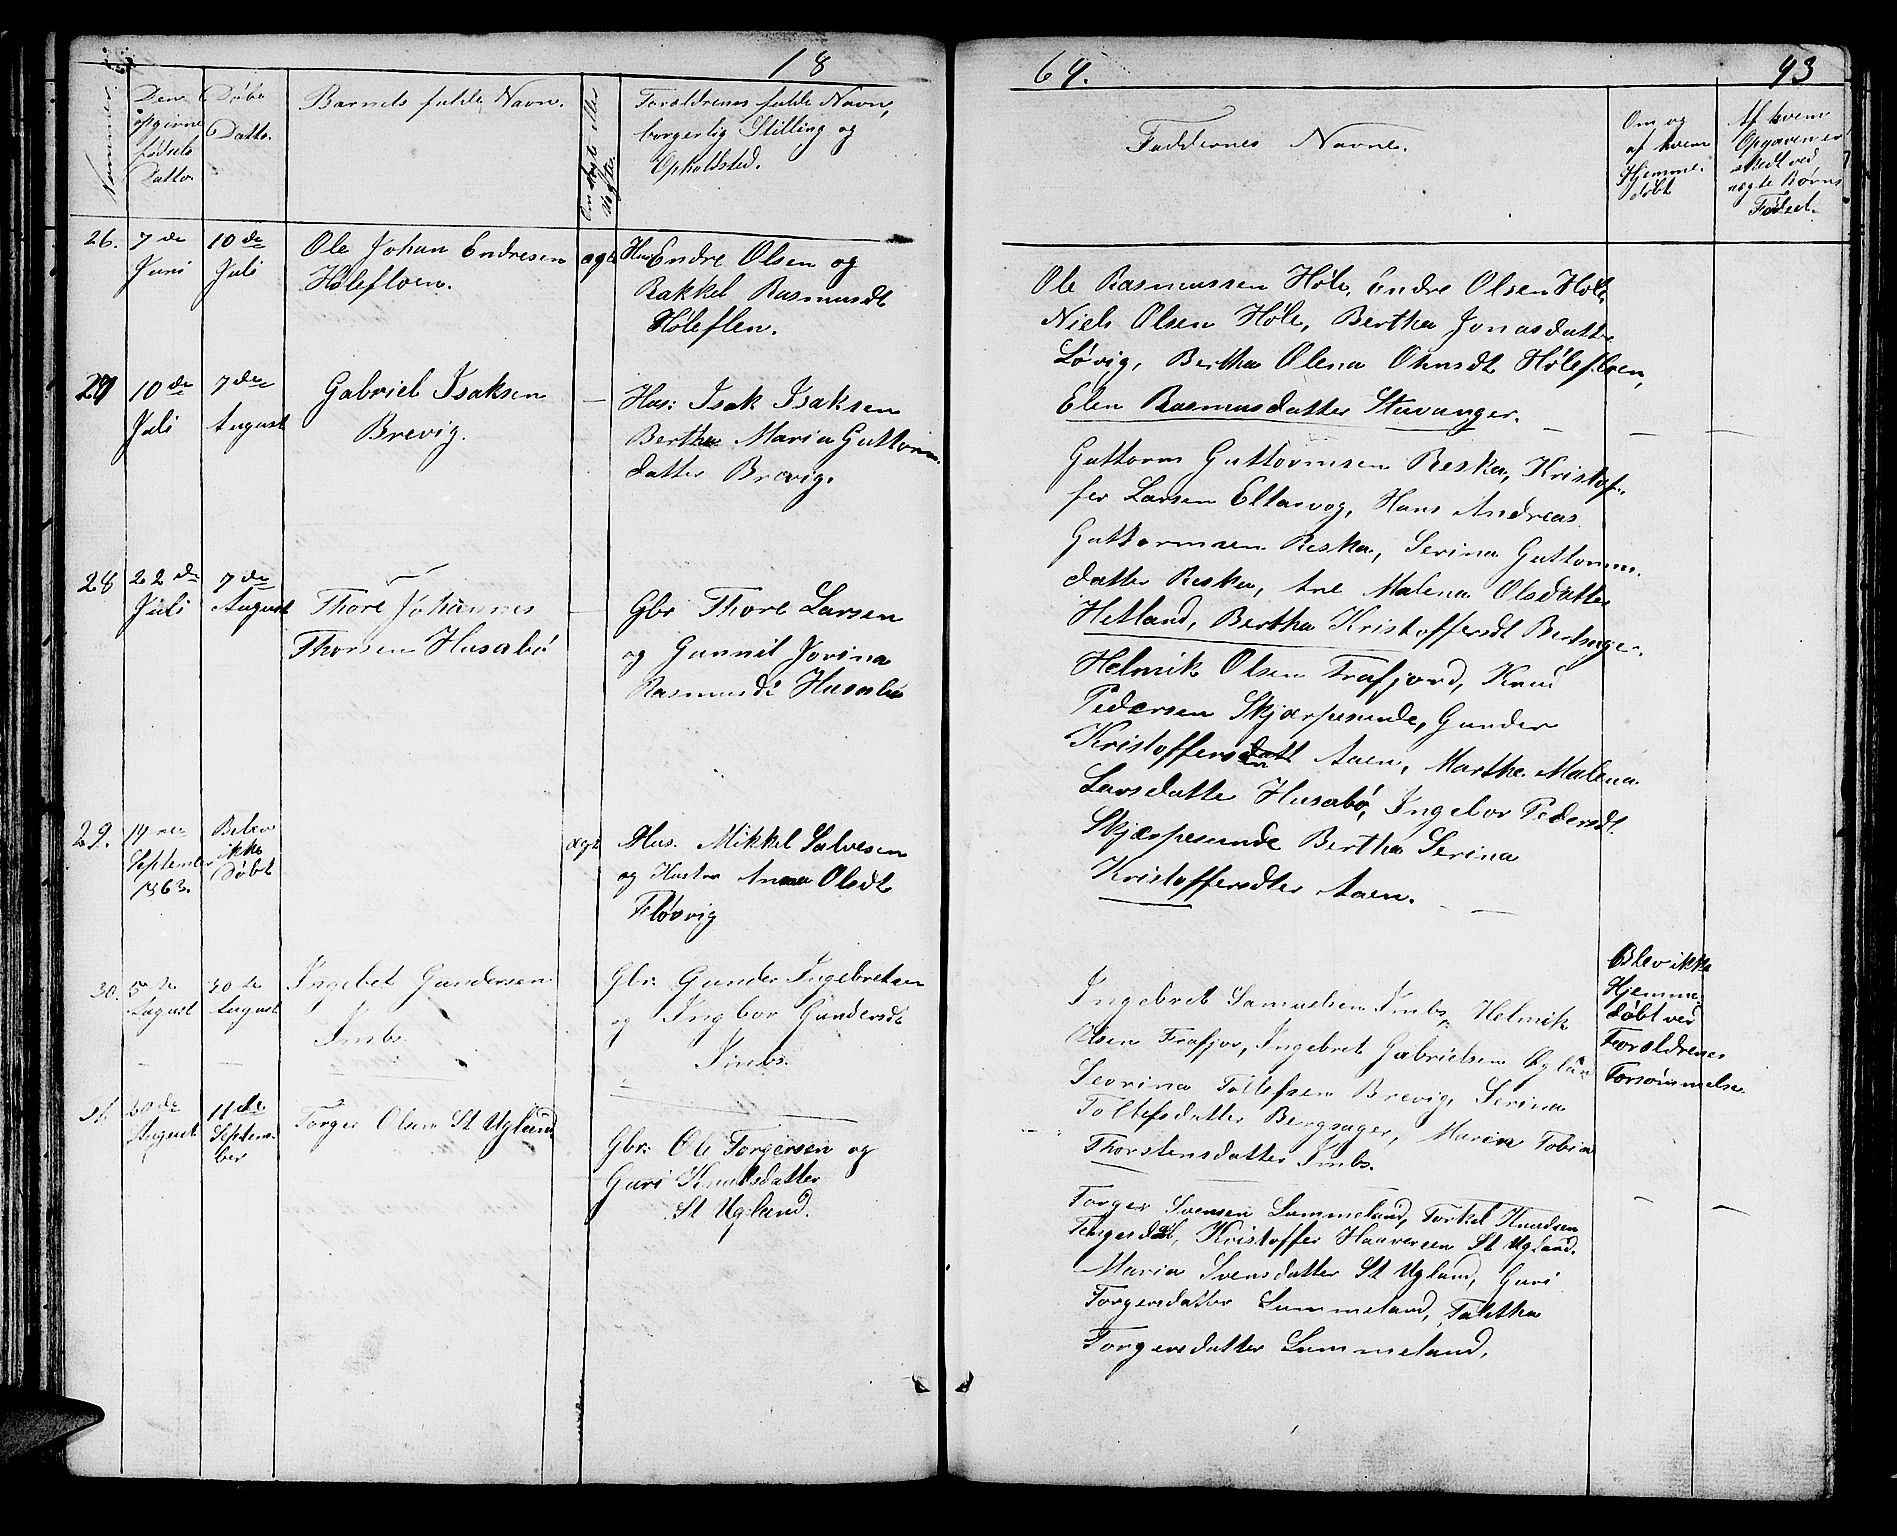 18
64.
93
Nummer
Den
opgivne
fødsels
Datto
Døbe
Datto.
Barnets fulde Navn.
Om ægte eller
Uægte.
Forældrenes fulde Navn,
borgerlig Stilling og
Opholdsted.
Faddernes Navne.
Om og
af hvem
Hjemme-
døbt
Af hvem
Opgaven er
skedt ved
uægte Børns
Fødsel.
26.
7 de
Juni
10 de
Juli
Ole Johan Endresen
Hølefloen.
ægte
Hus Endre Olsen og
Rakkel Rasmusdt
Høleflen.
Ole Rasmussen Høle, Endre Olsen Høle
Niels Olsen Høle, Bertha Jonasdatte
Løvig, Bertha Olena Olsnsdt Hølefloen,
Elen Rasmusdatter Stavanger.
27
10 de
Juli
7 de
August
Gabriel Isaksen
Brevig.
Hus: Isak Isaksen
Bertha Maria Guttorm
datter Brevig.
Guttorm Guttormsen Reska, Kristof-
fer Larsen Eltarvog, Hans Andreas
Guttormsen Reska, Serina Guttorms
datter Reska, Ane Malena Olsdatter
Hetland, Bertha Kristoffersdt Bersager.
28
22 de
Juli
7 de
August
Thore Johannes
Thorsen Husabø
Gbr Thore Larsen
og Gunnil Jorina
Rasmusdt Husabø
Helmik Olsen Frafjord, Knud
Pedersen Skjærpesunde, Gunder
Kristoffersen Aaen, Marthe Malena
Larsdatter Husabø, Ingebor Pedersdt
Skjærpesunde Bertha Serina
Kristoffersdter Aaen.
29.
19 de
September
1863.
Blev
ikke
Døbt
ægt
Hus. Mikkel Salvesen
og Hustru Anna Olsdt
Fløvig
Blev ikke
Hjemme-
døbt ved
Forældrenes
Forsømmelse
30.
5 te
August
30 te
August
Ingebet Gundersen
Imbs
Gbr: Gunder Ingebretsen
og Ingbor Gundersdt
Imbs.
Ingebret Samuelsen Imbs, Helmik
Olsen Frafjor, Ingebret Gabrielsen Uglan
Seorina Tollefsen Brevig, Serina
Tollefsdatter Bergsager, Maria Tobia
Thorstensdatter Imbs.
31.
20 de
August
11 de
Septem-
ber
Torger Olsen St Ugland
Gbr: Ole Torgersen og
Guri Knudsdatter
St Ugland.
Torger Svensen Lummeland, Torkel Knudsen
Tengesdal, Kristoffer Haaversen St Ugland.
Maria Svensdatter St Ugland, Guri
Torgersdatter Lummeland, Talitha
Torgersdatter Lummeland,